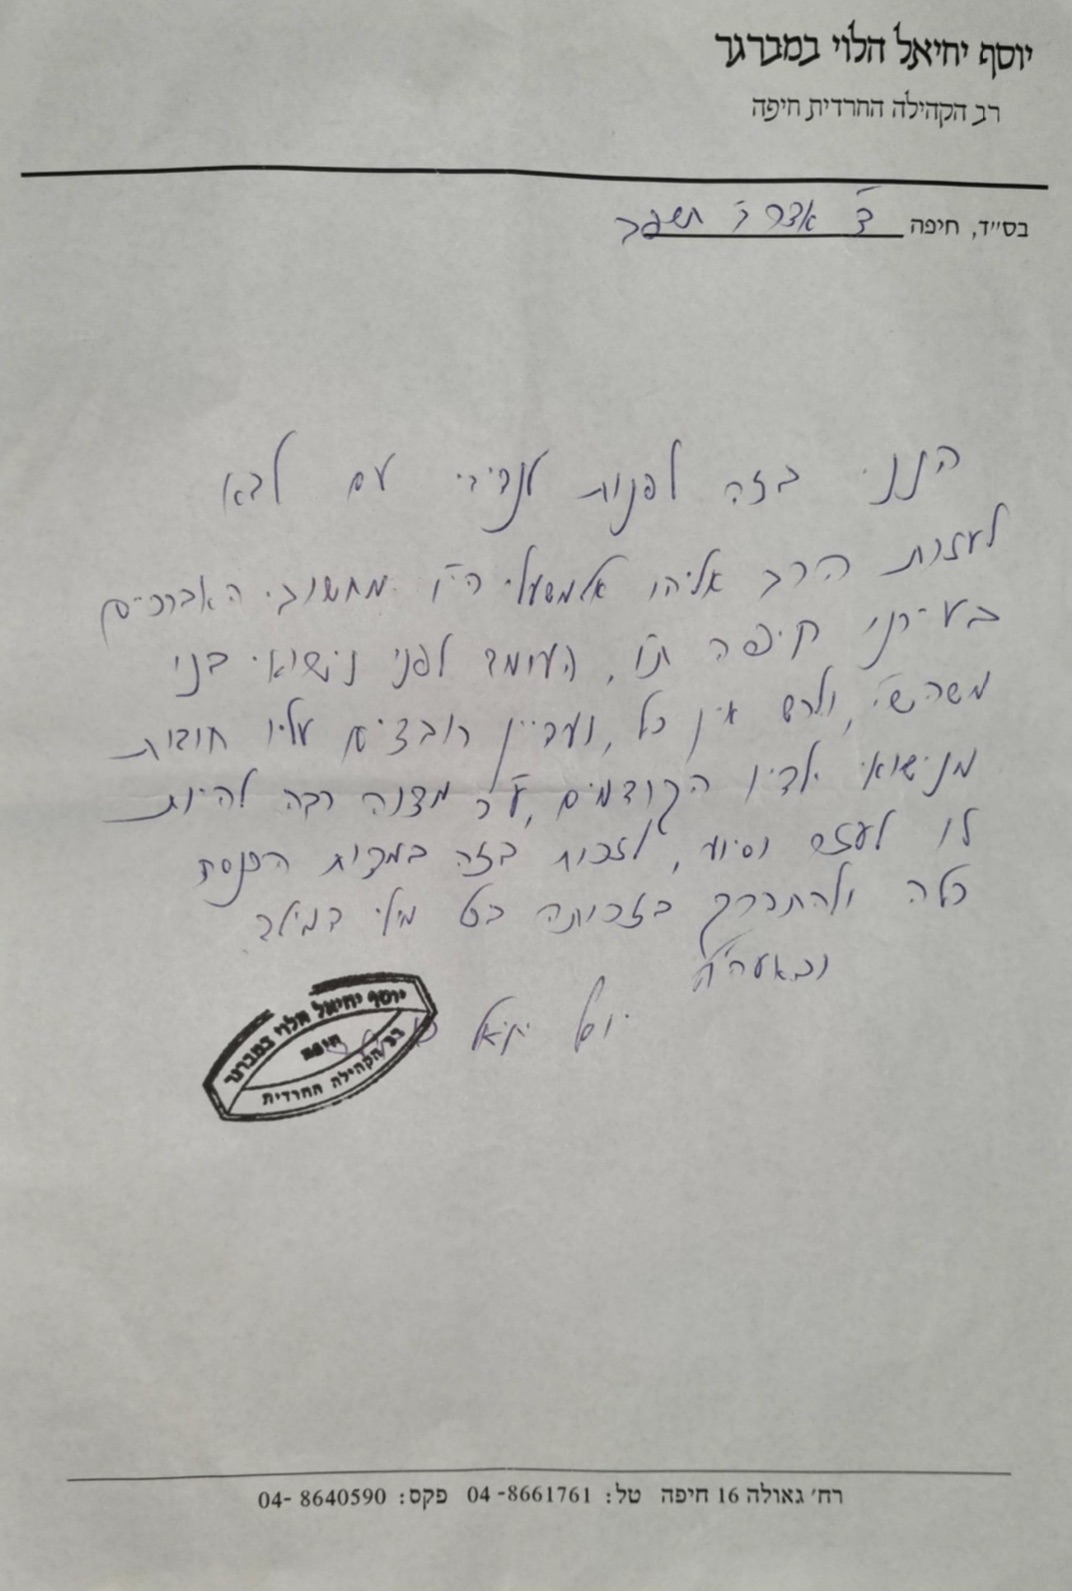 יוסף יחיאל הלוי במברגר
רב הקהילה החרדית חיפה
בס״ד, חיפה ד׳ אדר ב׳ תשפב
הנני בזה לפנות לנדיבי עם לבא
לעזרת הרב אליהו אלמשעלי הי״ו מחשובי האברכים
בעירנו חיפה ת״ו, העומד לפני נישואי בני
משהש״י, ולרש אין כל, ועדיין רובצים עליו חובות
מנישואי ילדיו הקודמים, ע״כ מצוה רבה להיות
לו לעזר וסיוע, לזכות בזה במצות הכנסת
כלה ולהתברך בזכותה בכל מילי דמיטב
ובאעה״ח
יוסף יחיאל
יוסף יחיאל הלוי במברגר
חיפה
רב הקהילה החרדית
רח׳ גאולה 16 חיפה טל: 04-8661761 פקס: 04-8640590